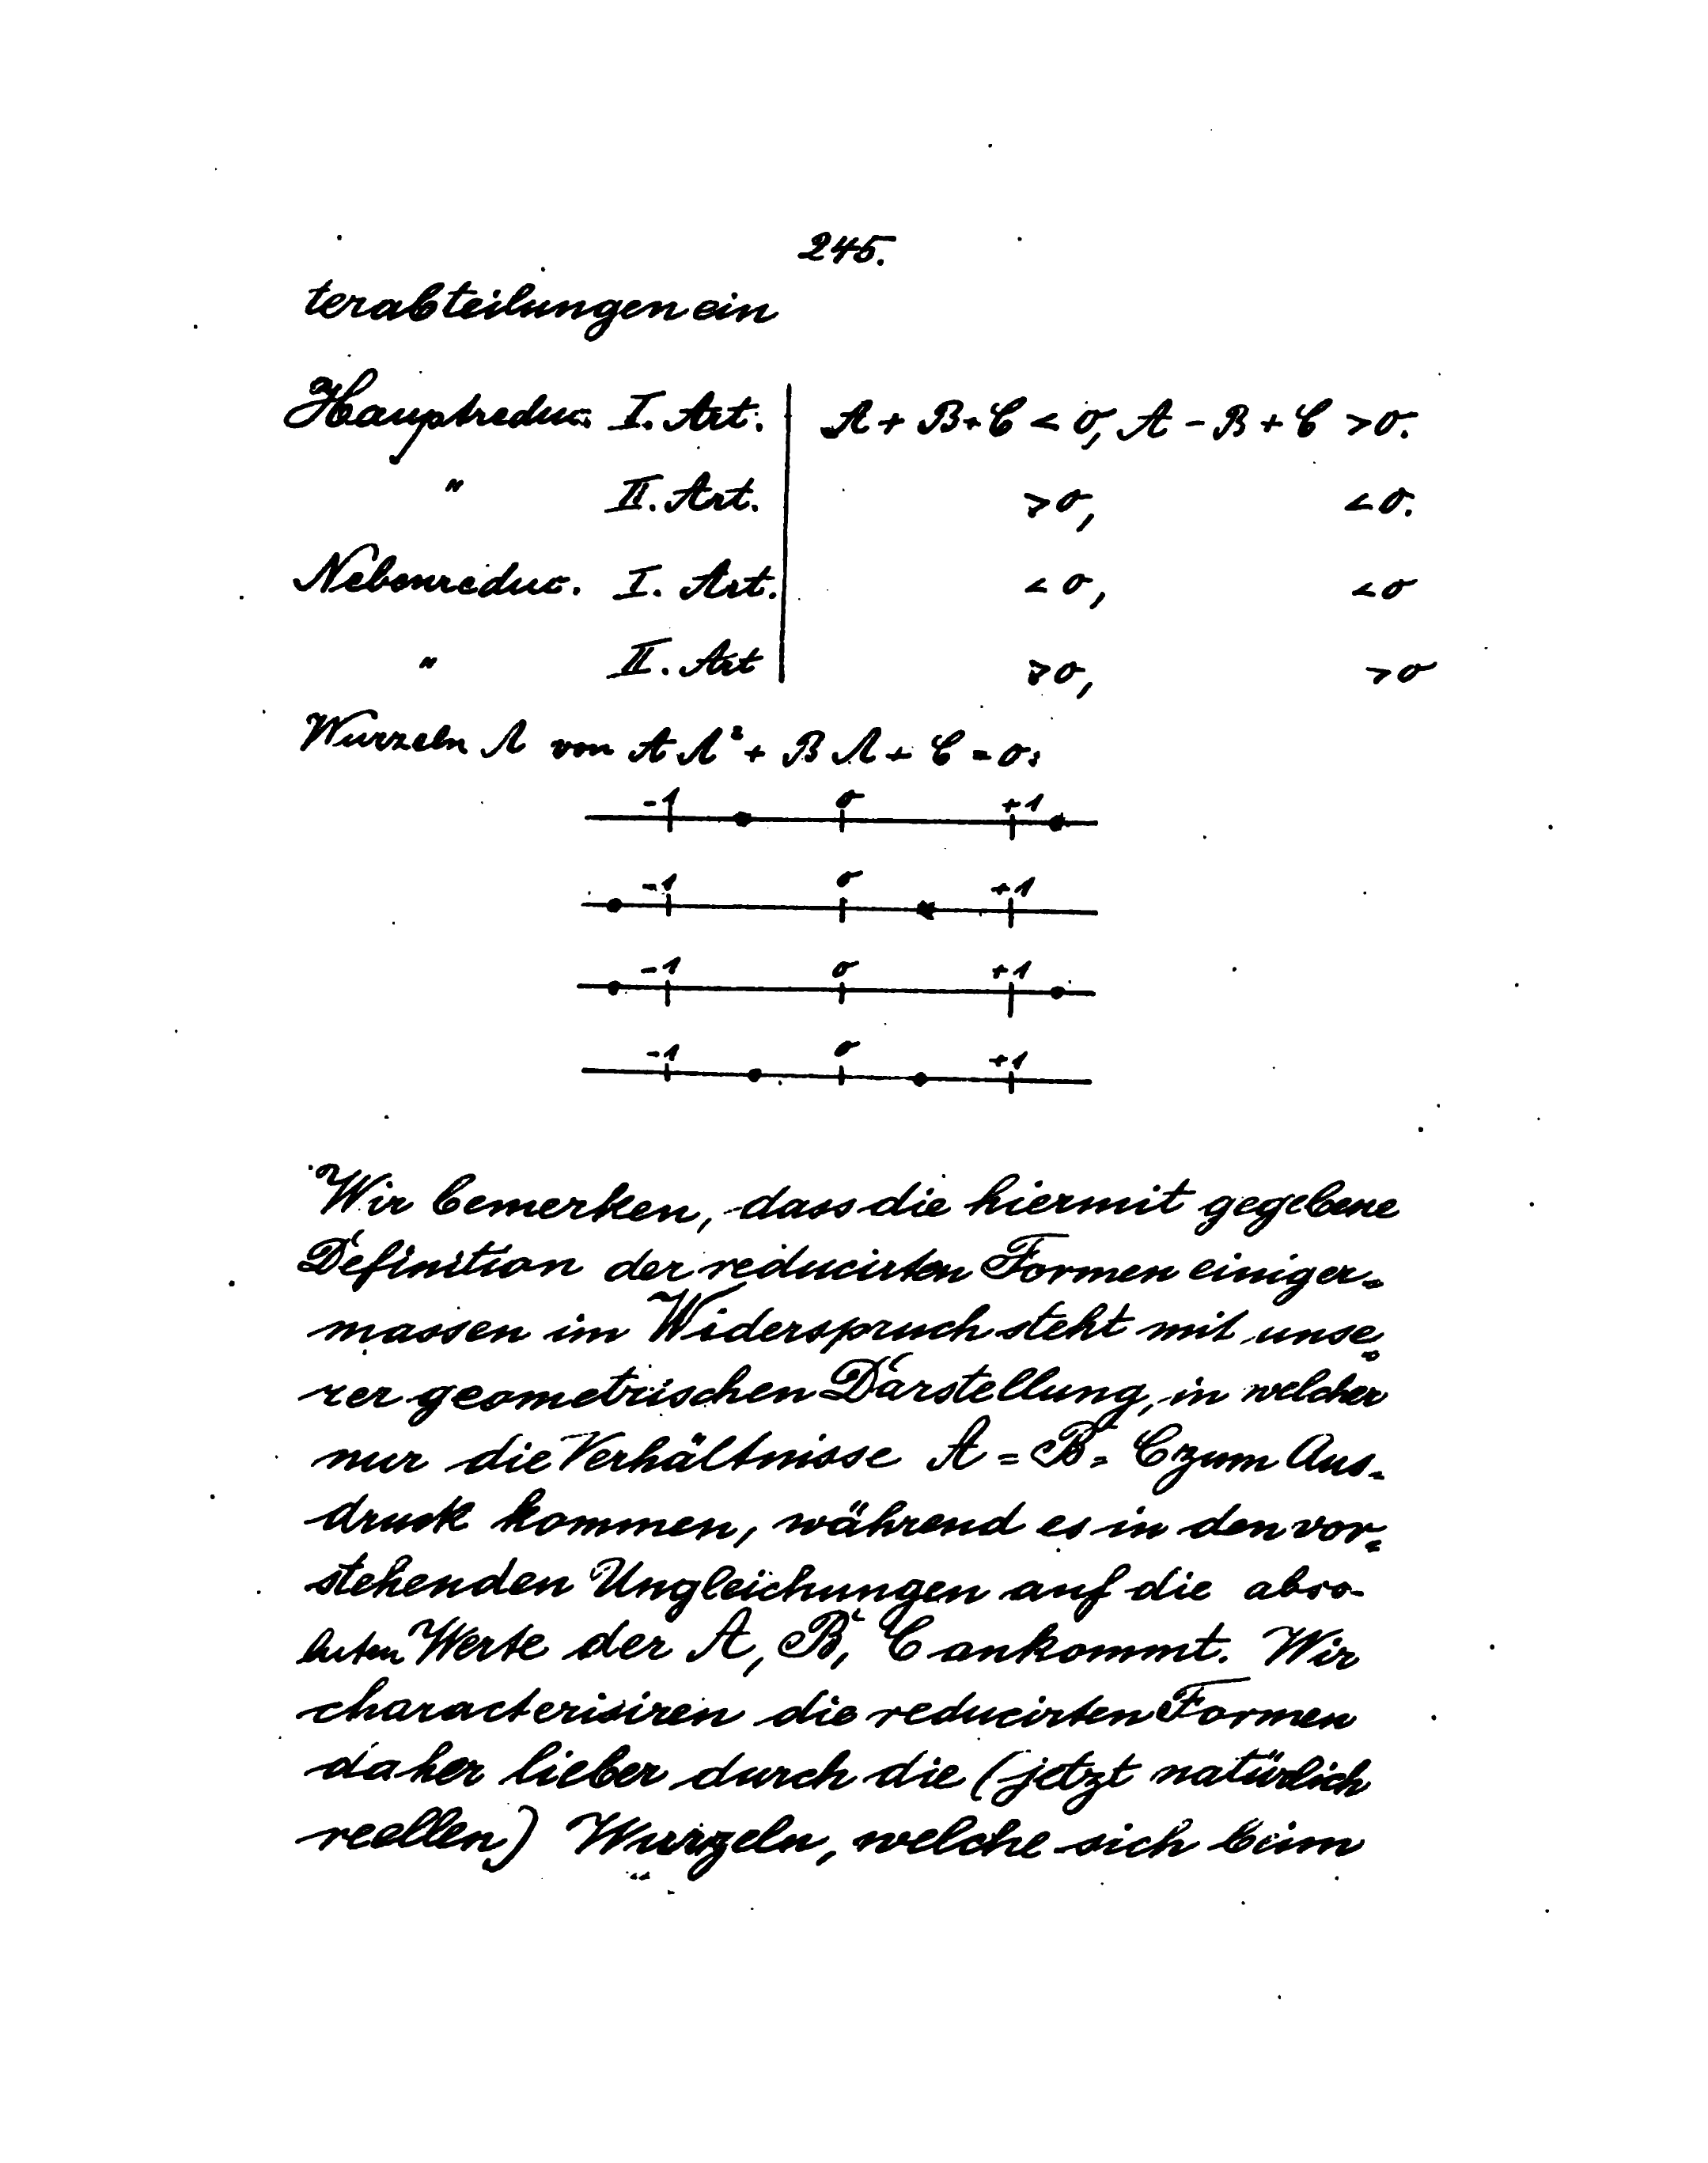 245.
terabteilungen ein
Hauptreduc. I. Art. | A + B + C < 0, A - B + C > 0.
" II. Art. | > 0, < 0.
Nebenreduc. I. Art. | < 0, < 0
" II. Art | > 0, > 0
Wurzeln Λ von A Λ² + B Λ + C = 0:
-1 0 +1
-1 0 +1
-1 0 +1
-1 0 +1
Wir bemerken, dass die hiermit gegebene
Definition der reducirten Formen einiger-
massen im Widerspruch steht mit unse-
rer geometrischen Darstellung, in welcher
nur die Verhältnisse A = B = C zum Aus-
druck kommen, während es in den vor-
stehenden Ungleichungen auf die abso-
luten Werte der A, B, C ankommt. Wir
characterisiren die reducirten Formen
daher lieber durch die (jetzt natürlich
reellen) Wurzeln, welche sich beim